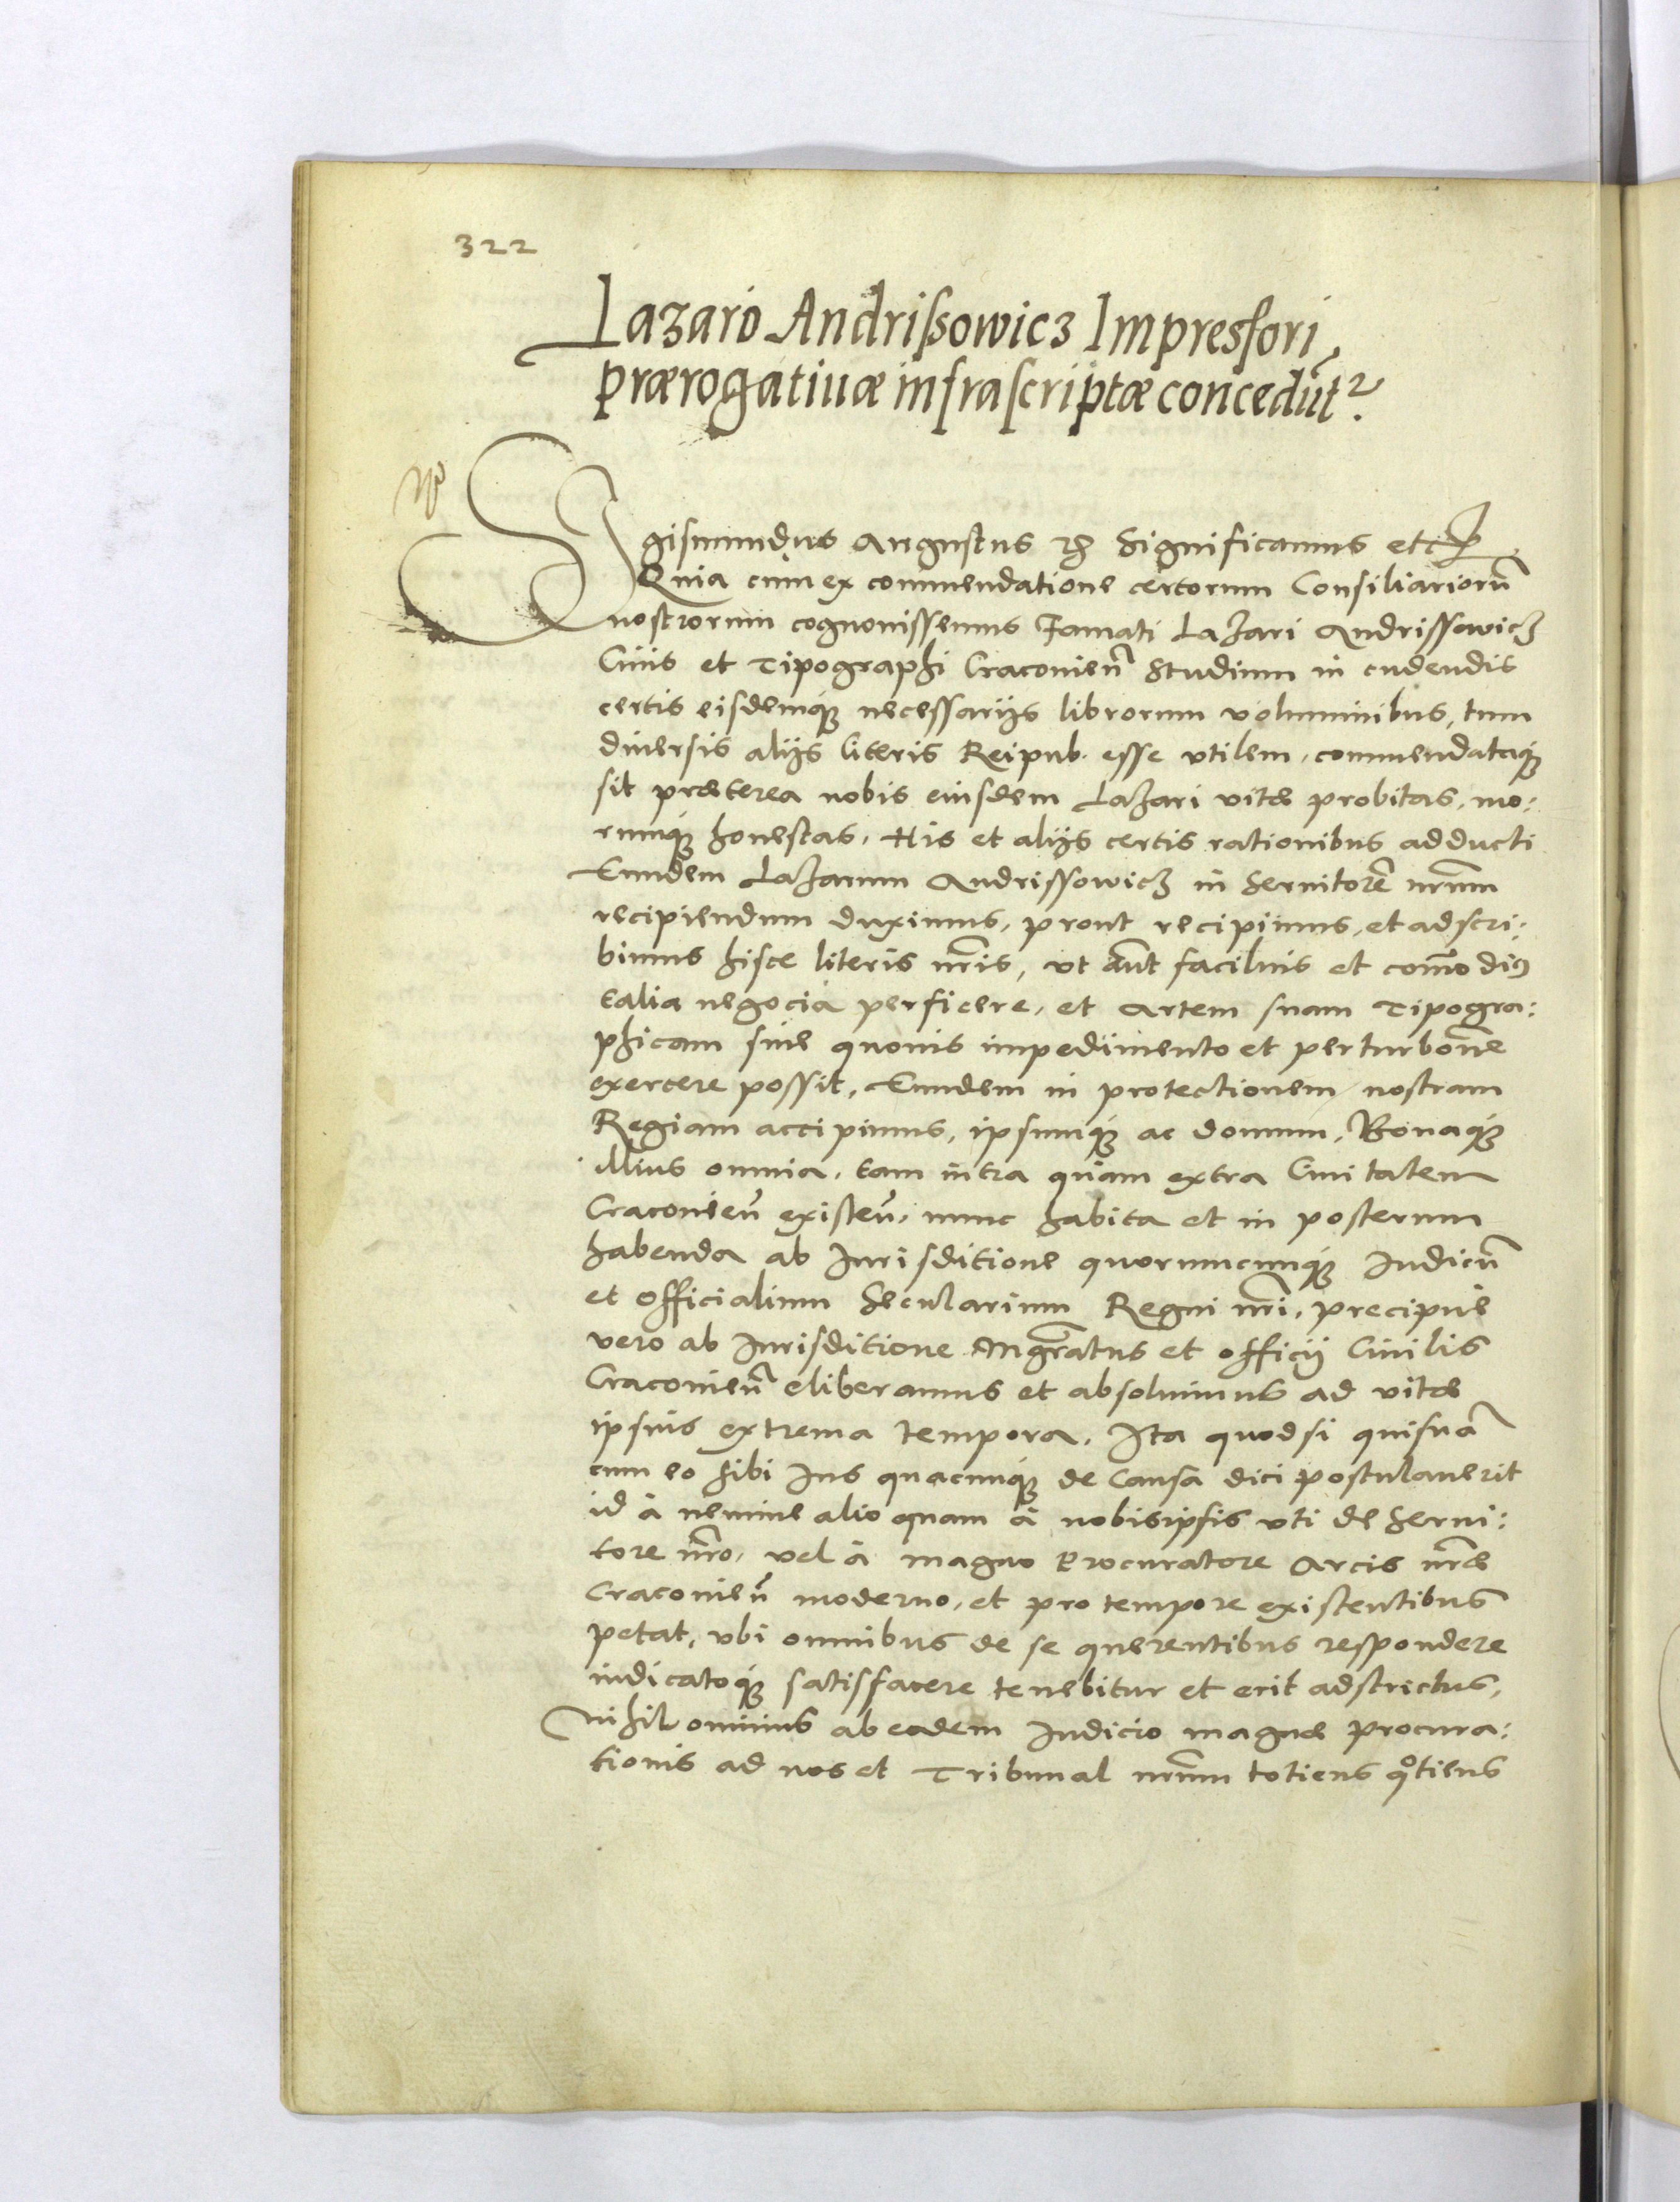 322
Lazaro Andrissowicz Impressori
prærogatiuæ infrascriptæ concedūtur
Sigismundus Augustus Rex Significamus etc
Quia cum ex commendatione certorum Consiliariorū
nostrorum cognouissemus Famati Lazari Andrissowicz
Ciuis et Tipographi Cracovieñ Studium in cudendis
certis eisdemque necessarijs librorum voluminibus, tum
diuersis alijs literis Reipub. esse vtilem, commendataque
sit præterea nobis eiusdem Lazari vitæ probitas, mo:
rumque honestas. His et alijs certis rationibus adducti
Eundem Lazarum Andrissowicz in Seruitorē nr̄um
recipiendum duximus, prout recipimus, et adscri:
bimus hisce literis nr̄is, vt aūt facilius et com̄odius
talia negocia perficere, et Artem suam Tipogra:
phicam sine quouis impedimento et perturbōne
exercere possit, Eundem in protectionem nostram
Regiam accipimus, ipsumque ac domum, Bonaque
illius omnia, tam intra quàm extra Ciuitatem
Cracovieñ existeñ, nunc habita et in posterum
habenda ab Jurisditione quorumcunque Judicū
et Officialium Secularium Regni nr̄i, precipuè
vero ab Jurisditione Mgr̄atus et officij Ciuilis
Cracovieñ eliberamus et absoluimus ad vitæ
ipsius extrema tempora. Ita quodsi quisuā
cum eo sibi Jus quacunque de Causa dici postulauerit
id à nemine alio quam à nobisipsis vti de Serui:
tore nr̄o, vel à magno Procuratore Arcis nr̄æ
Cracovieñ moderno, et pro tempore existentibus
petat, vbi omnibus de se querentibus respondere
iudicatoque satisfacere tenebitur et erit adstrictus,
Nihilominus ab eadem Judicio magnæ procura:
tionis ad nos et Tribunal nr̄um totiens qotiens